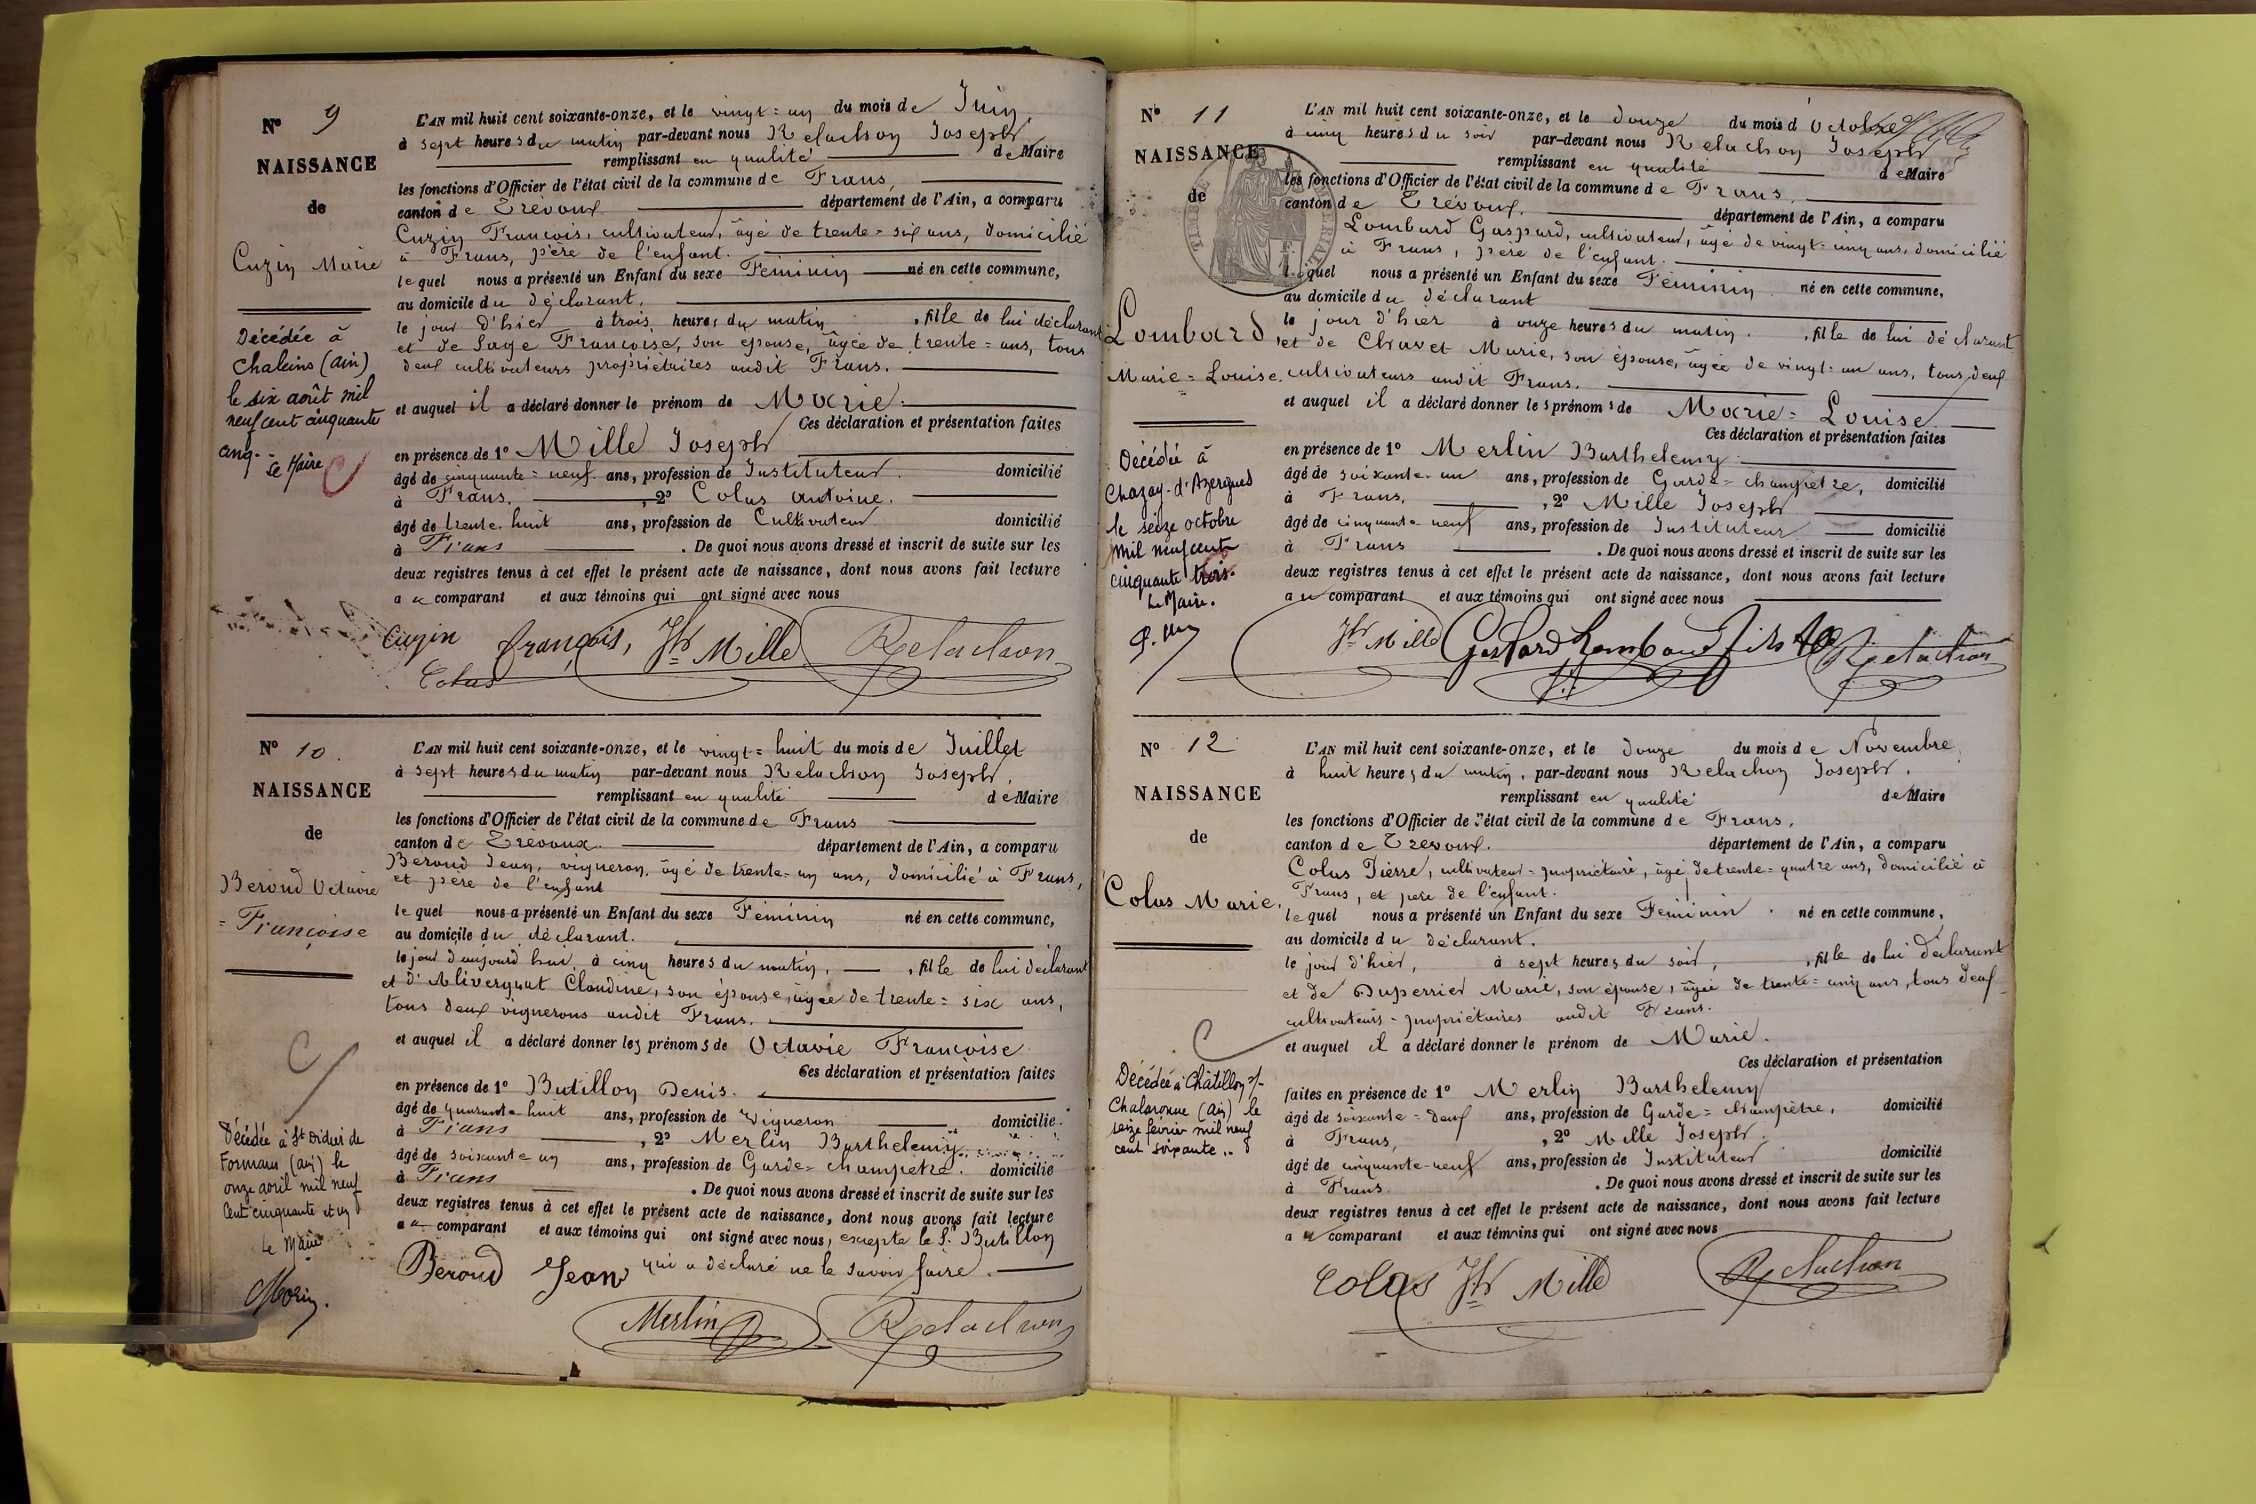 N° 9
NAISSANCE
de
Cuzin Marie
Décédée à
Chaleins (ain)
le six août mil
neuf cent cinquante
cinq.
Le Maire
L'AN mil huit cent soixante-onze, et le vingt=un du mois de Juin
à sept heures du matin par-devant nous Relachon Joseph
remplissant en qualité de Maire
les fonctions d'Officier de l'état civil de la commune de Frans,
canton de Trévoux département de l'Ain, a comparu
Cuzin François, cultivateur, âgé de trente=six ans, domicilié
à Frans, père de l'enfant.
lequel nous a présenté un Enfant du sexe Féminin né en cette commune,
au domicile du déclarant.
le jour d'hier à trois heures du matin, fille de lui déclarant
et de Sage Françoise, son épouse, âgée de trente=ans, tous
deux cultivateurs propriétaires audit Frans.
et auquel il a déclaré donner le prénom de Marie.
Ces déclaration et présentation faites
en présence de 1° Mille Joseph
âgé de cinquante=neuf ans, profession de Instituteur. domicilié
à Frans. , 2° Colas Antoine.
âgé de trente-huit ans, profession de Cultivateur domicilié
à Frans . De quoi nous avons dressé et inscrit de suite sur les
deux registres tenus à cet effet le présent acte de naissance, dont nous avons fait lecture
au comparant et aux témoins qui ont signé avec nous
Cuzin françois, Jh Mille Relachon
Colas
N° 10.
NAISSANCE
de
Beroud Octavie
=Françoise
Décédée à St Didier de
Formans (ain) le
onze avril mil neuf
cent cinquante et un
Le Maire
Morin.
L'AN mil huit cent soixante-onze, et le vingt=huit du mois de Juillet
à sept heures du matin par-devant nous Relachon Joseph,
remplissant en qualité de Maire
les fonctions d'Officier de l'état civil de la commune de Frans
canton de Trévoux. département de l'Ain, a comparu
Beroud Jean, vigneron, âgé de trente=un ans, domicilié à Frans,
et père de l'enfant
lequel nous a présenté un Enfant du sexe Féminin né en cette commune,
au domicile du déclarant.
le jour d'aujourd'hui à cinq heures du matin, , fille de lui déclarant
et d'Alivergnat Claudine, son épouse, âgée de trente=six ans,
tous deux vignerons audit Frans.
et auquel il a déclaré donner les prénoms de Octavie Françoise
Ces déclaration et présentation faites
en présence de 1° Butillon Denis.
âgé de quarante-huit ans, profession de Vigneron domicilié
à Frans , 2° Merlin Barthelemy
âgé de soixante=un ans, profession de Garde=champêtre. domicilié
à Frans . De quoi nous avons dressé et inscrit de suite sur les
deux registres tenus à cet effet le présent acte de naissance, dont nous avons fait lecture
au comparant et aux témoins qui ont signé avec nous, excepté le S. Butillon
qui a déclaré ne le savoir faire.
Béroud Jean
Merlin Relachon
N° 11
NAISSANCE
de
Lombard,
Marie=Louise.
Décédée à
Chazay-d'Azergues
le seize octobre
mil neuf cent
cinquante trois.
Le Maire.
L'AN mil huit cent soixante-onze, et le douze du mois d'Octobre
à cinq heures du soir par-devant nous Relachon Joseph
remplissant en qualité de Maire
les fonctions d'Officier de l'état civil de la commune de Frans,
canton de Trévoux. département de l'Ain, a comparu
Lombard Gaspard, cultivateur, âgé de vingt=cinq ans, domicilié
à Frans, père de l'enfant.
lequel nous a présenté un Enfant du sexe Féminin né en cette commune,
au domicile du déclarant
le jour d'hier à onze heures du matin. , fille de lui déclarant
et de Chavet Marie, son épouse, âgée de vingt=un ans, tous deux
cultivateurs audit Frans.
et auquel il a déclaré donner les prénoms de Marie=Louise.
Ces déclaration et présentation faites
en présence de 1° Merlin Barthelemy.
âgé de soixante-un ans, profession de Garde=champêtre, domicilié
à Frans, , 2° Mille Joseph
âgé de cinquante-neuf ans, profession de Instituteur domicilié
à Frans . De quoi nous avons dressé et inscrit de suite sur les
deux registres tenus à cet effet le présent acte de naissance, dont nous avons fait lecture
au comparant et aux témoins qui ont signé avec nous
Jh Mille Relachon
N° 12
NAISSANCE
de
Colas Marie.
Décédée à Châtillon s/-
Chalaronne (ain) le
seize février mil neuf
cent soixante..
L'AN mil huit cent soixante-onze, et le douze du mois de Novembre
à huit heures du matin, par-devant nous Relachon Joseph.
remplissant en qualité de Maire
les fonctions d'Officier de l'état civil de la commune de Frans,
canton de Trévoux. département de l'Ain, a comparu
Colas Pierre, cultivateur=propriétaire, âgé de trente=quatre ans, domicilié à
Frans, et père de l'enfant.
lequel nous a présenté un Enfant du sexe Féminin. né en cette commune,
au domicile du déclarant.
le jour d'hier, à sept heures du soir, , fille de lui déclarant
et de Duperrier Marie, son épouse, âgée de trente=cinq ans, tous deux
cultivateurs-propriétaires audit Frans.
et auquel il a déclaré donner le prénom de Marie.
Ces déclaration et présentation
faites en présence de 1° Merlin Barthelemy
âgé de soixante=deux ans, profession de Garde=champêtre, domicilié
à Frans, , 2° Mille Joseph.
âgé de cinquante-neuf ans, profession de Instituteur domicilié
à Frans. . De quoi nous avons dressé et inscrit de suite sur les
deux registres tenus à cet effet le présent acte de naissance, dont nous avons fait lecture
au comparant et aux témoins qui ont signé avec nous
Colas Jh Mille Relachon